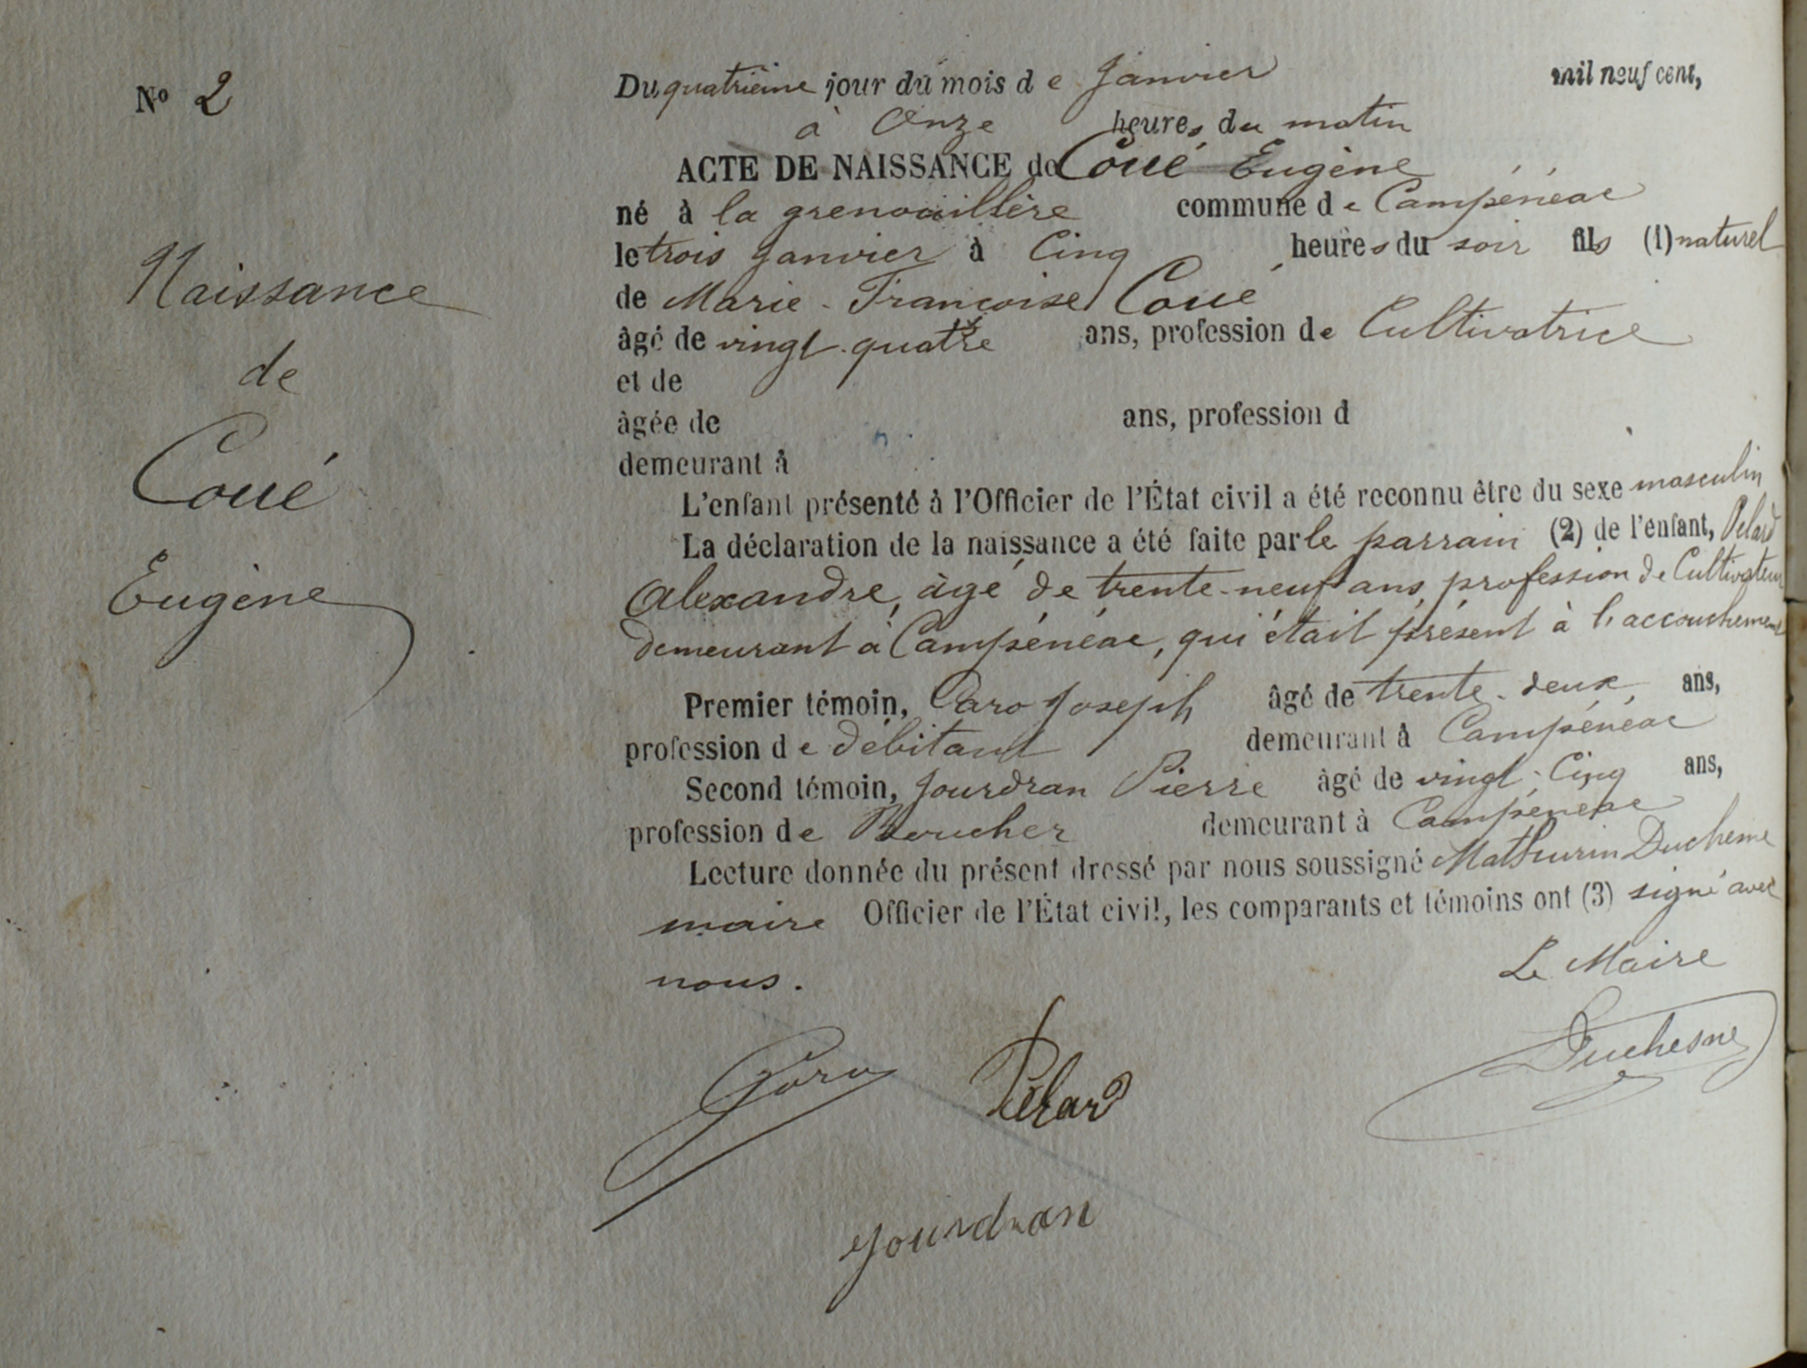 N° 2
Naissance
de
Coué
Eugène
Du quatrième jour du mois de Janvier mil neuf cent,
à Onze heures du matin
ACTE DE NAISSANCE de Coué Eugène
né à la grenouillère commune de Campénéac
le trois Janvier à Cinq heures du soir fils (1) naturel
de Marie-Françoise Coué
âgé de vingt-quatre ans, profession de Cultivatrice
et de
âgée de ans, profession d
demeurant à
L'enfant présenté à l'Officier de l'État civil a été reconnu être du sexe masculin
La déclaration de la naissance a été faite par le parrain (2) de l'enfant, Pelard
Alexandre, âgé de trente-neuf ans, profession de Cultivateur
demeurant à Campénéac, qui était présent à l'accouchement
Premier témoin, Caro Joseph âgé de trente-deux ans,
profession de débitant demeurant à Campénéac
Second témoin, Jourdran Pierre âgé de vingt-Cinq ans,
profession de Boucher demeurant à Campénéac
Lecture donnée du présent dressé par nous soussigné Mathurin Duchesne
maire Officier de l'État civil, les comparants et témoins ont (3) signé avec
nous.
Le Maire
Duchesne
Caro Pélard
Jourdran